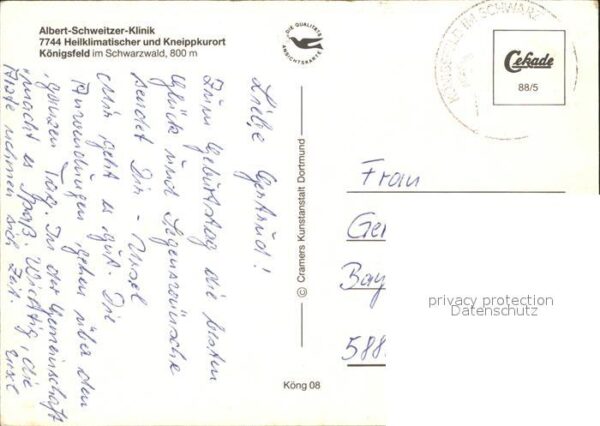 Albert-Schweitzer-Klinik
7744 Heilklimatischer und Kneippkurort
Königsfeld im Schwarzwald, 800 m
DIE QUALITÄTS
ANSICHTSKARTE
IM SCHWARZ
Cekade
88/5
Liebe Gertrud!
Zum Geburtstag die besten
Glück und Segenswünsche
sendet Dir - Ursel
Mir geht es gut. Die
Anwendungen gehen über den
ganzen Tag. In der Gemeinschaft
macht es Spaß. Wichtig, die
Ärzte nehmen sich Zeit.
© Cramers Kunstanstalt Dortmund
Frau
Ger
Bay
588
privacy protection
Datenschutz
Köng 08